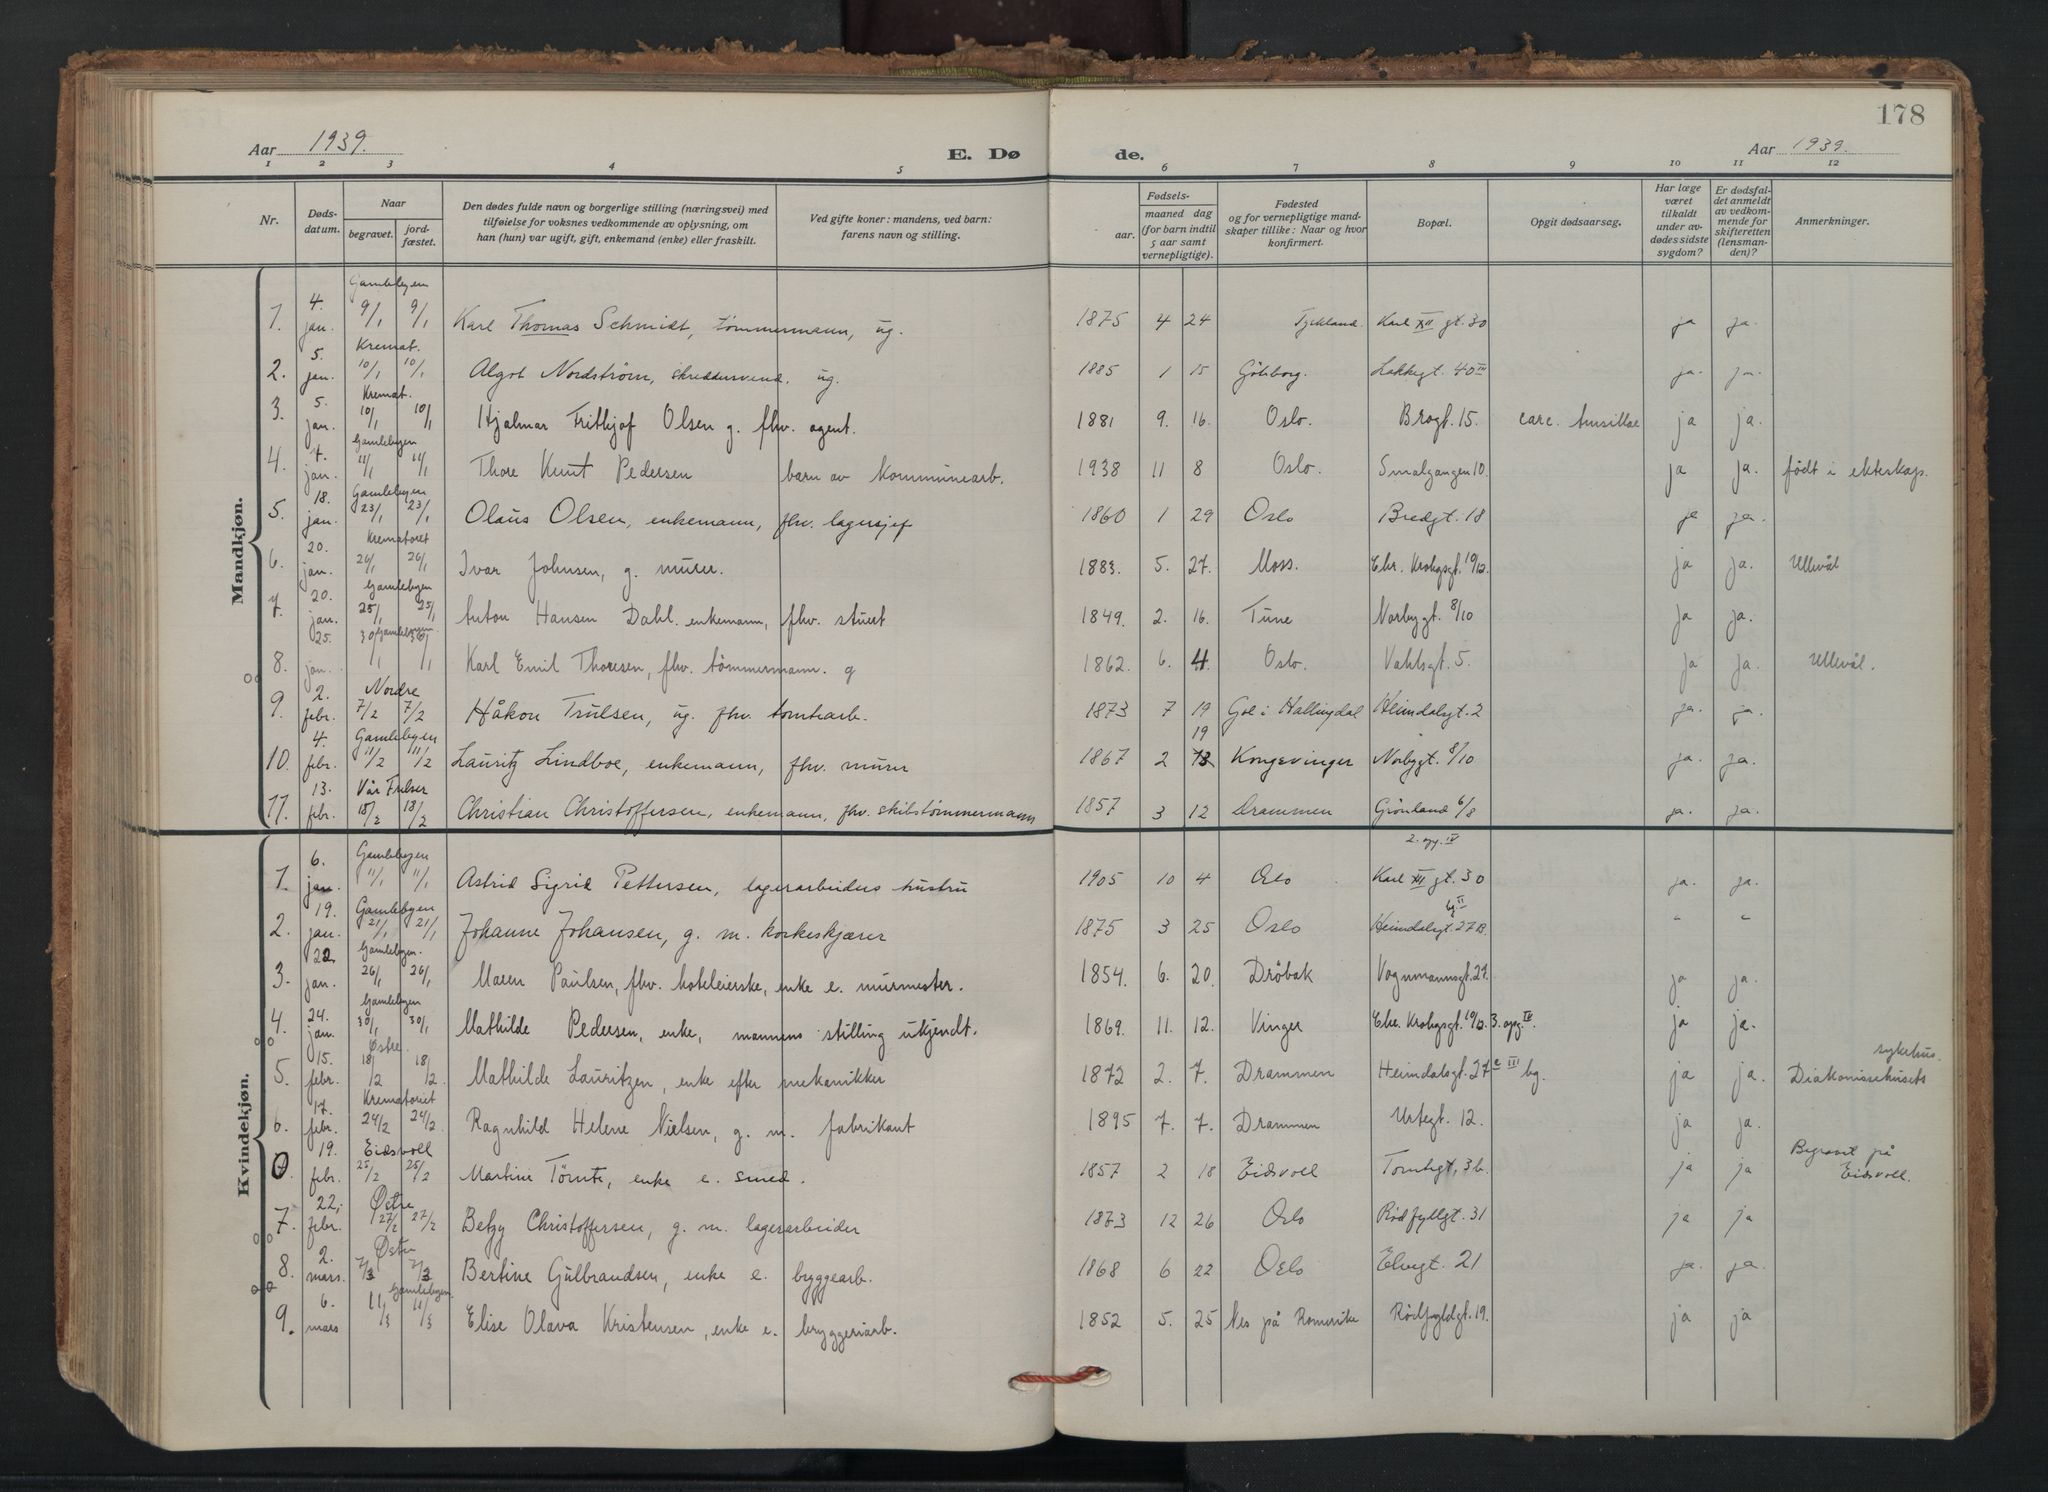 178
Aar 1939. E. Dø de. Aar 1939.
1 2 3 4 5 6 7 8 9 10 11 12
Nr.
Døds-
datum.
Naar
begravet.
jord-
fæstet.
Den dødes fulde navn og borgerlige stilling (næringsvei) med
tilføielse for voksnes vedkommende av oplysning, om
han (hun) var ugift, gift, enkemand (enke) eller fraskilt.
Ved gifte koner: mandens, ved barn:
farens navn og stilling.
Fødsels-
aar.
maaned dag
(for barn indtil
5 aar samt
vernepligtige).
Fødested
og for vernepligtige mand-
skaper tillike: Naar og hvor
konfirmert.
Bopæl.
Opgit dødsaarsag.
Har læge
været
tilkaldt
under av-
dødes sidste
sygdom?
Er dødsfal-
det anmeldt
av vedkom-
mende for
skifteretten
(lensman-
den)?
Anmerkninger.
Mandkjøn.
4. Gamlebyen
1. jan. 9/1 9/1 Karl Thomas Schmidt, tømmermann, ug. 1875 4 24 Tyskland. Karl XII gt. 30 ja ja.
5. Kremat.
2. jan. 10/1 10/1 Algot Nordstrøm, skreddersvend. ug. 1885 1 15 Göteborg. Lakkegt. 40 III ja. ja.
5. Kremat.
3. jan. 10/1 10/1 Hjalmar Frithjof Olsen g. fhv. agent. 1881 9. 16. Oslo. Brogt. 15. carc. tonsillae ja ja.
7. Gamlebyen
4. jan. 11/1 11/1 Thore Knut Pedersen barn av kommunearb. 1938 11 8 Oslo. Smalgangen 10. ja ja. født i ekteskap.
18. Gamlebyen
5. jan. 23/1 23/1 Olaus Olsen, enkemann, fhv. lagersjef 1860 1 29 Oslo Bredgt. 18 ja ja.
20. Krematoriet
6. jan. 26/1 26/1 Ivar Johnsen, g. murer. 1883. 5. 27. Moss. Chr. Krohgsgt. 10/12. ja ja. Ullevål
20. Gamlebyen
7. jan. 25/1 25/1 Anton Hansen Dahl. enkemann, fhv. stuert 1849. 2. 16. Tune Norbygt. 8/10 ja ja.
25. Gamlebyen
8. jan. 30/1 30/1 Karl Emil Thoresen, fhv. tømmermann. g 1862. 6. 4. Oslo. Vahlsgt. 5. ja ja. Ullevål.
2. Nordre
9. febr. 7/2 7/2 Håkon Trulsen, ug. fhv. tomtearb. 1873 7 19 Gol i Hallingdal Heimdalsgt. 2 ja. ja.
4. Gamlebyen 19
10. febr. 11/2 11/2 Lauritz Lindboe, enkemann, fhv. murer 1867 2 Kongsvinger Norbygt. 8/10 ja. ja.
13. Vår Frelser
11. febr. 18/2 18/2 Christian Christoffersen, enkemann, fhv. skibstømmermann 1857 3 12 Drammen Grønland 6/8 ja. ja.
Kvindekjøn.
6. Gamlebyen 2. opg. IV
1. jan. 11/1 11/1 Astrid Sigrid Pettersen, lagerarbeiders hustru 1905 10 4 Oslo Karl XII gt. 30 ja. ja.
19. Gamlebyen bg II
2. jan. 21/1 21/1 Johanne Johansen, g. m. korkeskjærer 1875 3 25 Oslo Heimdalsgt. 27 B. " "
22. Gamlebyen.
3. jan. 26/1 26/1 Maren Paulsen, fhv. hoteleierske, enke e. murmester. 1854. 6. 20. Drøbak Vognmannsgt. 27. ja ja.
24. Gamlebyen
4. jan. 30/1 30/1 Mathilde Pedersen, enke, mannens stilling ukjendt. 1869. 11. 12. Vinger Chr. Krohgsgt. 10/12. 3. opg. IV. ja ja.
15. Østre. sykehus.
5. febr. 18/2 18/2 Mathilde Lauritzen, enke efter mekanikker 1872 2. 7. Drammen Heimdalsgt. 27 c III bg. ja ja. Diakonissehusets
17. Krematoriet
6. febr. 24/2 24/2 Ragnhild Helene Nielsen, g. m. fabrikant 1895 7. 7. Drammen Urtegt. 12. ja ja.
19. Eidsvoll Begravet på
0. febr. 25/2 25/2 Martine Tømte, enke e. smed. 1857 2 18 Eidsvoll Tomtegt, 3 b. ja ja Eidsvoll.
22. Østre
7. febr. 27/2 27/2 Betzy Christoffersen, g. m. lagerarbeider 1873 12 26 Oslo Rødfyllgt. 31 ja ja
2. Østre
8. mars. 7/3 7/3 Bertine Gulbrandsen, enke e. byggearb. 1868 6 22 Oslo Elvegt. 21 ja. ja.
6. Gamlebyen.
9. mars 11/3 11/3 Elise Olava Kristensen, enke e. bryggeriarb. 1852 5. 25 Nes på Romerike Rødfyldgt. 19. ja ja